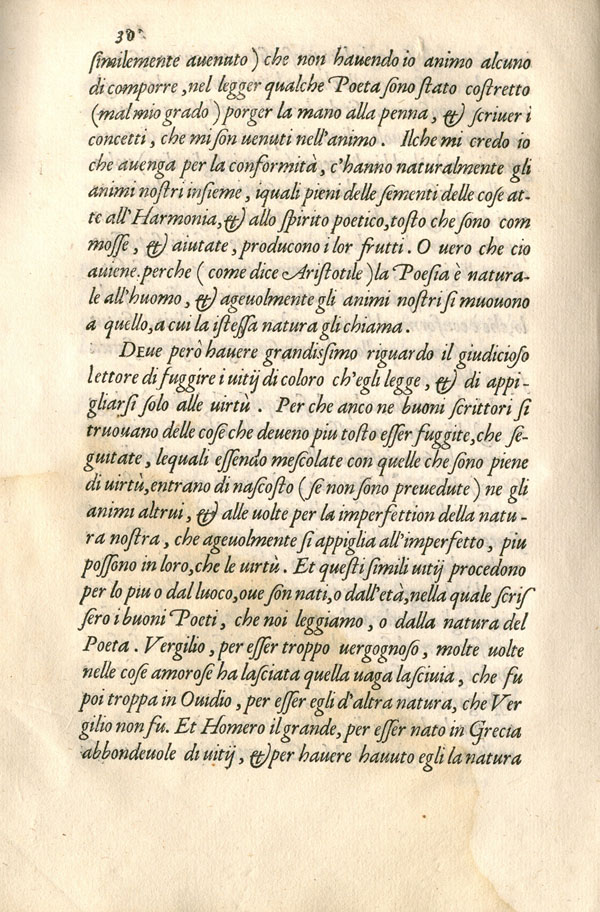 30
ſimilemente auenuto) che non hauendo io animo alcuno
di comporre, nel legger qualche Poeta ſono ſtato coſtretto
(mal mio grado) porger la mano alla penna, & ſcriuer i
concetti, che mi ſon uenuti nell'animo. Ilche mi credo io
che auenga per la conformità, c'hanno naturalmente gli
animi noſtri inſieme, iquali pieni delle ſementi delle coſe at-
te all'Harmonia, & allo ſpirito poetico, toſto che ſono com
moſſe, & aiutate, producono i lor frutti. O uero che cio
auiene. perche (come dice Ariſtotile) la Poeſia è natura-
le all'huomo, & ageuolmente gli animi noſtri ſi muouono
a quello, a cui la iſteſſa natura gli chiama.
DEue però hauere grandiſſimo riguardo il giudicioſo
lettore di fuggire i uitij di coloro ch'egli legge, & di appi-
gliarſi ſolo alle uirtù. Per che anco ne buoni ſcrittori ſi
truouano delle coſe che deueno piu toſto eſſer fuggite, che ſe-
guitate, lequali eſſendo meſcolate con quelle che ſono piene
di uirtù, entrano di naſcoſto (ſe non ſono preuedute) ne gli
animi altrui, & alle uolte per la imperfettion della natu-
ra noſtra, che ageuolmente ſi appiglia all'imperfetto, piu
poſſono in loro, che le uirtù. Et queſti ſimili uitij procedono
per lo piu o dal luoco, oue ſon nati, o dall'età, nella quale ſcriſ
ſero i buoni Poeti, che noi leggiamo, o dalla natura del
Poeta. Vergilio, per eſſer troppo uergognoſo, molte uolte
nelle coſe amoroſe ha laſciata quella uaga laſciuia, che fu
poi troppa in Ouidio, per eſſer egli d'altra natura, che Ver
gilio non fu. Et Homero il grande, per eſſer nato in Grecia
abbondeuole di uitij, & per hauere hauuto egli la natura